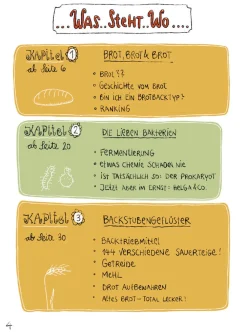 ...WAS..STEHT..WO....
KAPITEL 1
ab Seite 6
BROT, BROT & BROT
• BROT??
• GESCHICHTE VOM BROT
• BIN ICH EIN BROTBACKTYP?
• RANKING
KAPITEL 2
ab Seite 20
DIE LIEBEN BAKTERIEN
• FERMENTIERUNG
• ETWAS CHEMIE SCHADET NIE
• IST TATSÄCHLICH SO: DER PROKARYOT
• JETZT ABER IM ERNST: HELGA & CO.
KAPITEL 3
ab Seite 30
BACKSTUBENGEFLÜSTER
• BACKTRIEBMITTEL
• 144 VERSCHIEDENE SAUERTEIGE!
• GETREIDE
• MEHL
• BROT AUFBEWAHREN
• ALTES BROT - TOTAL LECKER!
4